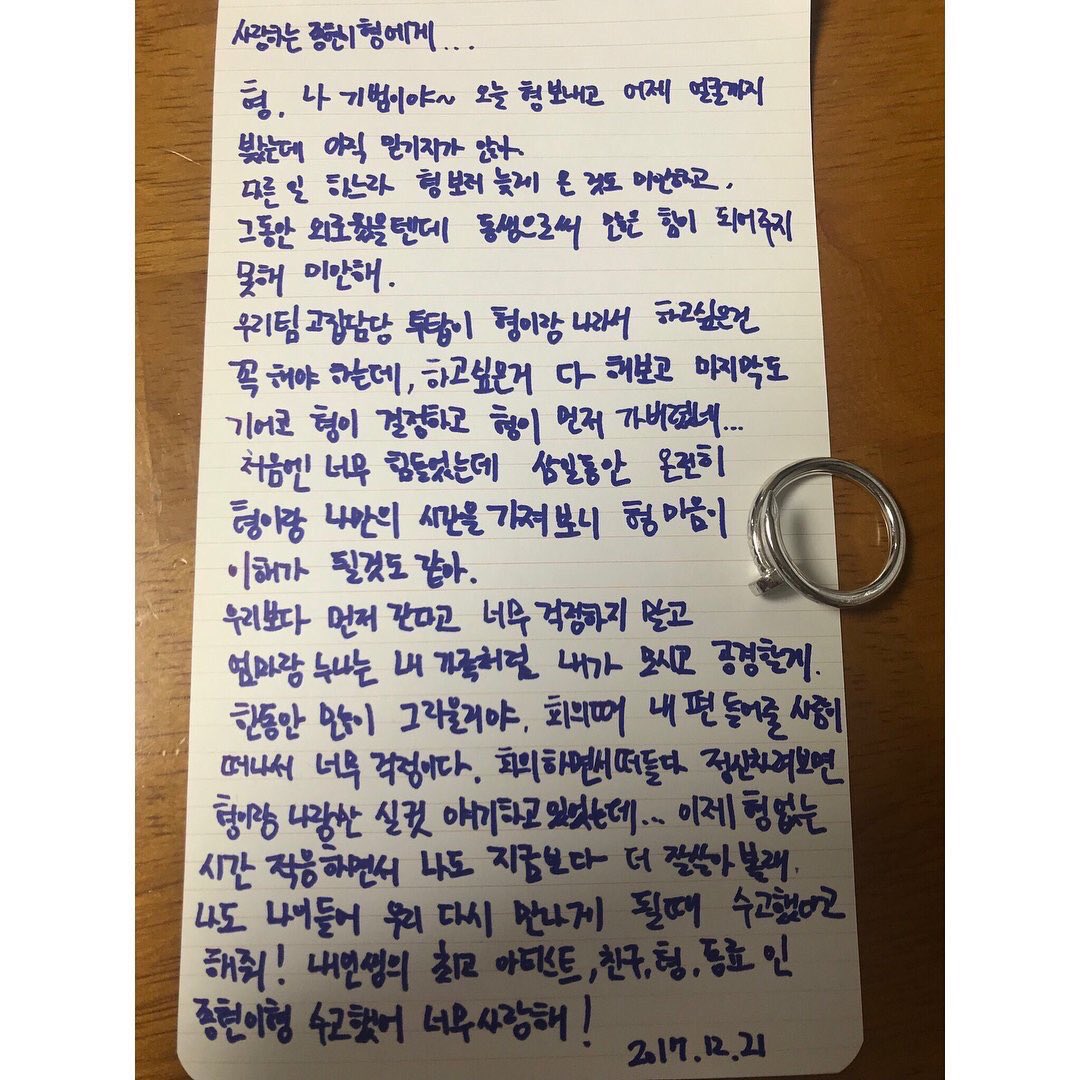 사랑하는 종현이형에게...
형, 나 기범이야~ 오늘 형보내고 어제 얼굴까지
봤는데 아직 믿기지가 않아.
다른 일 하느라 형보러 늦게 온 것도 미안하고,
그동안 외로웠을텐데 동생으로써 많은 힘이 되어주지
못해 미안해.
우리팀 고집담당 투탑이 형이랑 나라서 하고싶은건
꼭 해야 하는데, 하고싶은거 다 해보고 마지막도
기어코 형이 결정하고 형이 먼저 가버렸네...
처음엔 너무 힘들었는데 삼일동안 온전히
형이랑 나만의 시간을 가져보니 형 마음이
이해가 될것도 같아.
우리보다 먼저 간다고 너무 걱정하지 말고
엄마랑 누나는 내 가족처럼 내가 모시고 공경할게.
한동안 많이 그리울거야, 회의때 내 편 들어줄 사람이
떠나서 너무 걱정이다. 회의하면서 떠들다 정신차려보면
형이랑 나랑만 실컷 얘기하고 있었는데... 이제 형 없는
시간 적응하면서 나도 지금보다 더 잘살아 볼래.
나도 나이들어 우리 다시 만나게 될때 수고했다고
해줘! 내인생의 최고 아티스트, 친구, 형, 동료 인
종현이형 수고했어 너무 사랑해!
2017.12.21